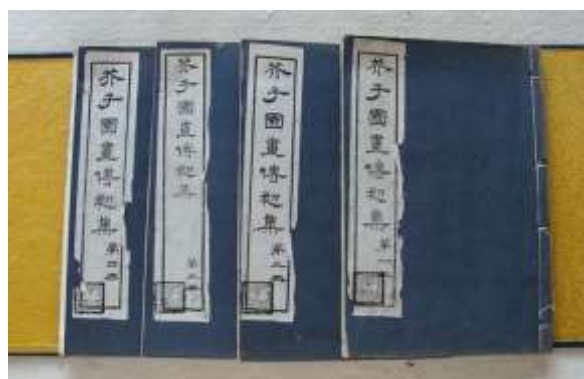 芥子園畫傳初集 第一
芥子園畫傳初集 第二冊
芥子園畫傳初集 第
芥子園畫傳初集 第四冊